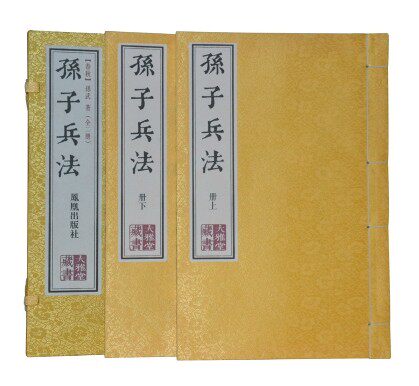 【春秋】孫武 著（全二册）
孫子兵法
鳳凰出版社
大雅堂
藏書
孫子兵法
册下
大雅堂
藏書
孫子兵法
册上
大雅堂
藏書